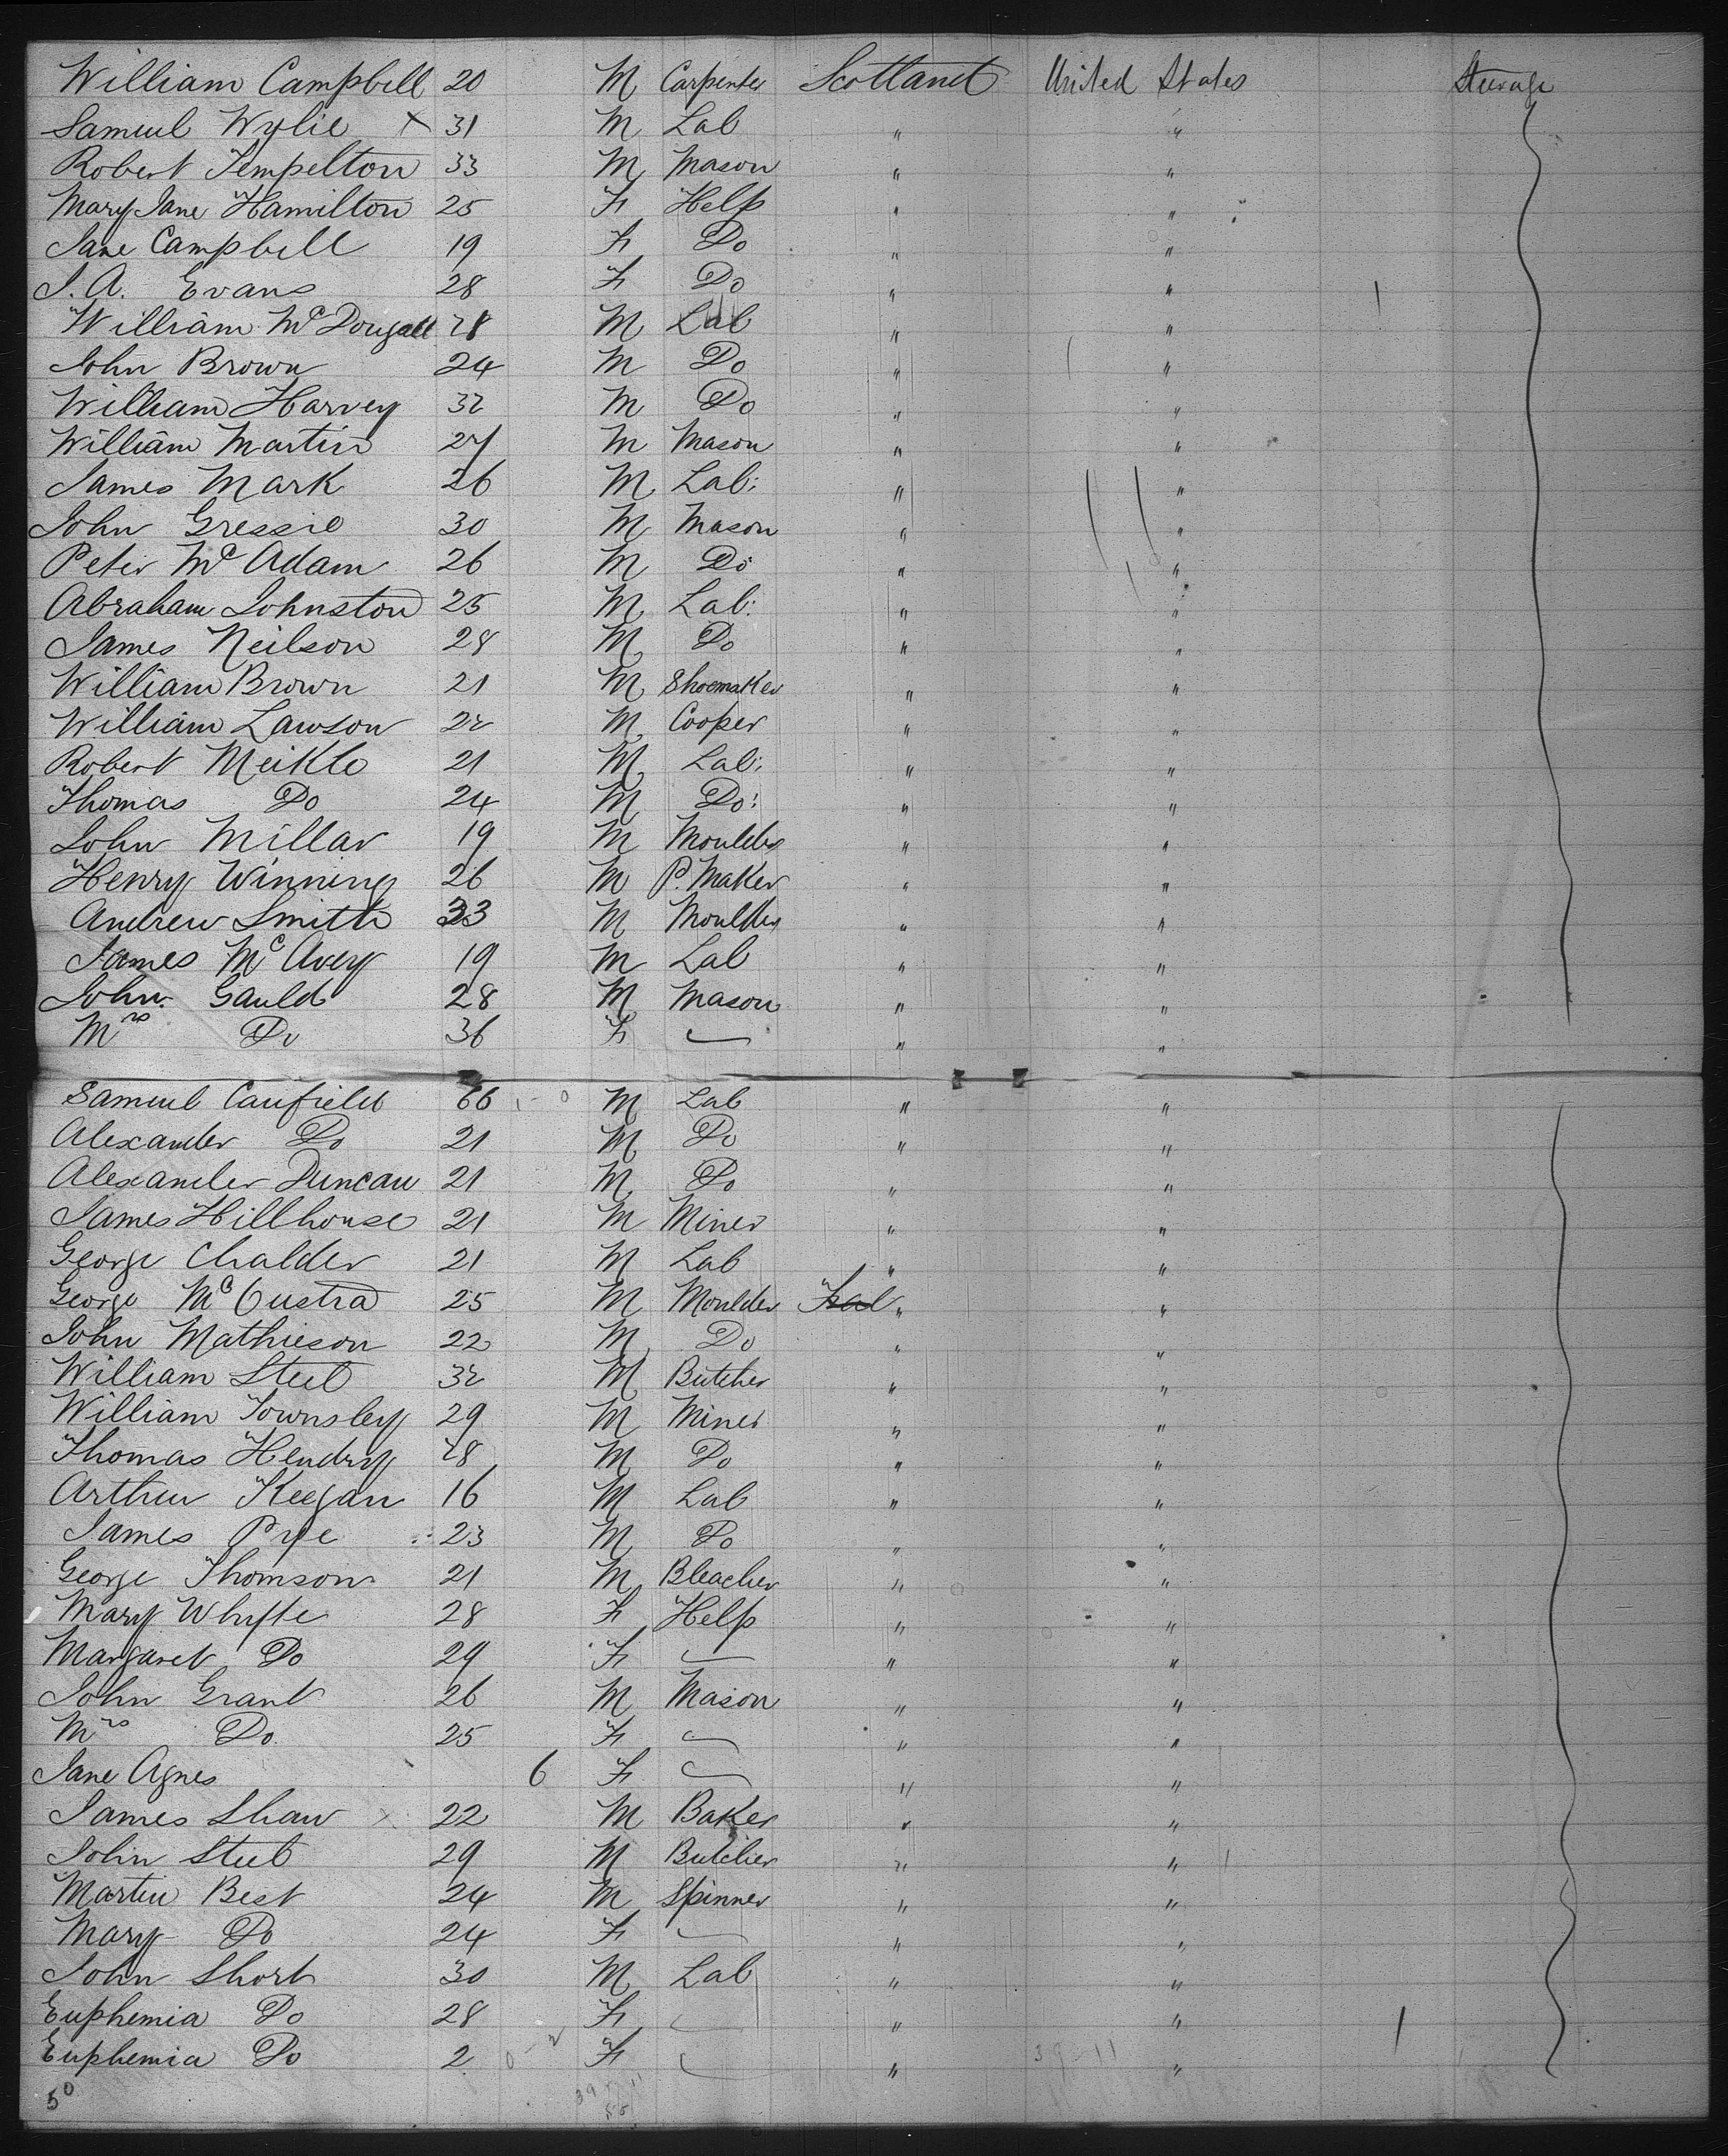 William Campbell 20 M Carpenter Scotland United States Steerage
Samuel Wylie X 31 M Lab " "
Robert Tempelton 33 M Mason " "
Mary Jane Hamilton 25 F Help " "
Jane Campbell 19 F Do " "
J. A. Evans 28 F Do " "
William McDougall 28 M Lab " "
John Brown 24 M Do " "
William Harvey 32 M Do " "
William Martin 27 M Mason " "
James Mark 26 M Lab: " "
John Gressie 30 M Mason " "
Peter McAdam 26 M Do " "
Abraham Johnston 25 M Lab: " "
James Neilson 28 M Do " "
William Brown 21 M Shoemaker " "
William Lawson 22 M Cooper " "
Robert Meikle 21 M Lab: " "
Thomas Do 24 M Do: " "
John Millar 19 M Moulder " "
Henry Winning 26 M P. Maker " "
Andrew Smith 33 M Moulder " "
James McAvey 19 M Lab " "
John Gauld 28 M Mason " "
Mrs Do 36 F — " "
Samuel Caufield 66 M Lab " "
Alexander Do 21 M Do " "
Alexander Duncan 21 M Do " "
James Hillhouse 21 M Miner " "
George Chalder 21 M Lab " "
George 25 M Moulder " "
John Mathieson 22 M Do " "
William Steel 32 M Butcher " "
William Townsley 29 M Miner " "
Thomas Hendry 28 M Do " "
Arthur Keegan 16 M Lab " "
James Pye 23 M Do " "
George Thomson 21 M Bleacher " "
Mary Whyte 28 F Help " "
Margaret Do 29 F — " "
John Grant 26 M Mason " "
Mrs Do 25 F — " "
Jane Agnes 6 F — " "
James Shaw 22 M Baker " "
John Steel 29 M Butcher " "
Martin Best 24 M Spinner " "
Mary Do 24 F — " "
John Short 30 M Lab " "
Euphemia Do 28 F — " "
Euphemia Do 2 F — 39-11 " "
50